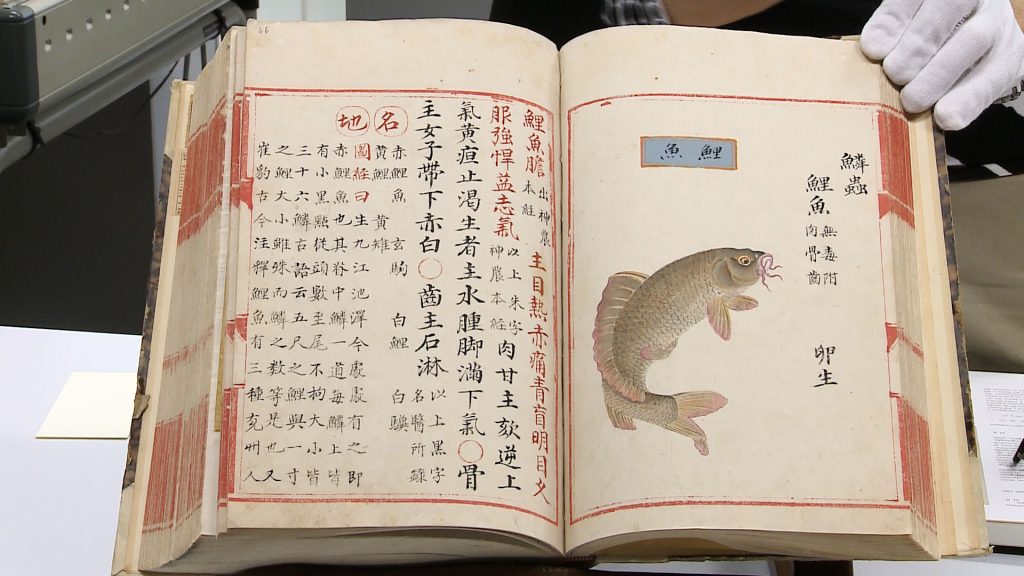 鱗蟲
鯉魚 無毒附
肉骨齒
卵生
鯉魚
鯉魚膽 出神農本經 主目熱赤痛青盲明目久
服強悍益志氣 以上朱字神農本經 肉甘主欬逆上
氣黃疸止渴生者主水腫脚滿下氣○骨
主女子帶下赤白○齒主石淋 以上黑字名醫所錄
名
赤鯉魚 玄駒 白鯉 白驥
黃鯉 黃雉
地
圖經曰生九江池澤今處處有之即
赤鯉魚也其脊中鱗一道每鱗上皆
有小黑點從頭數至尾不拘大小皆
三十六鱗古語云五尺之鯉與一寸
之鯉大小雖殊而鱗之數等是也又
崔豹古今注釋鯉魚有三種兗州人